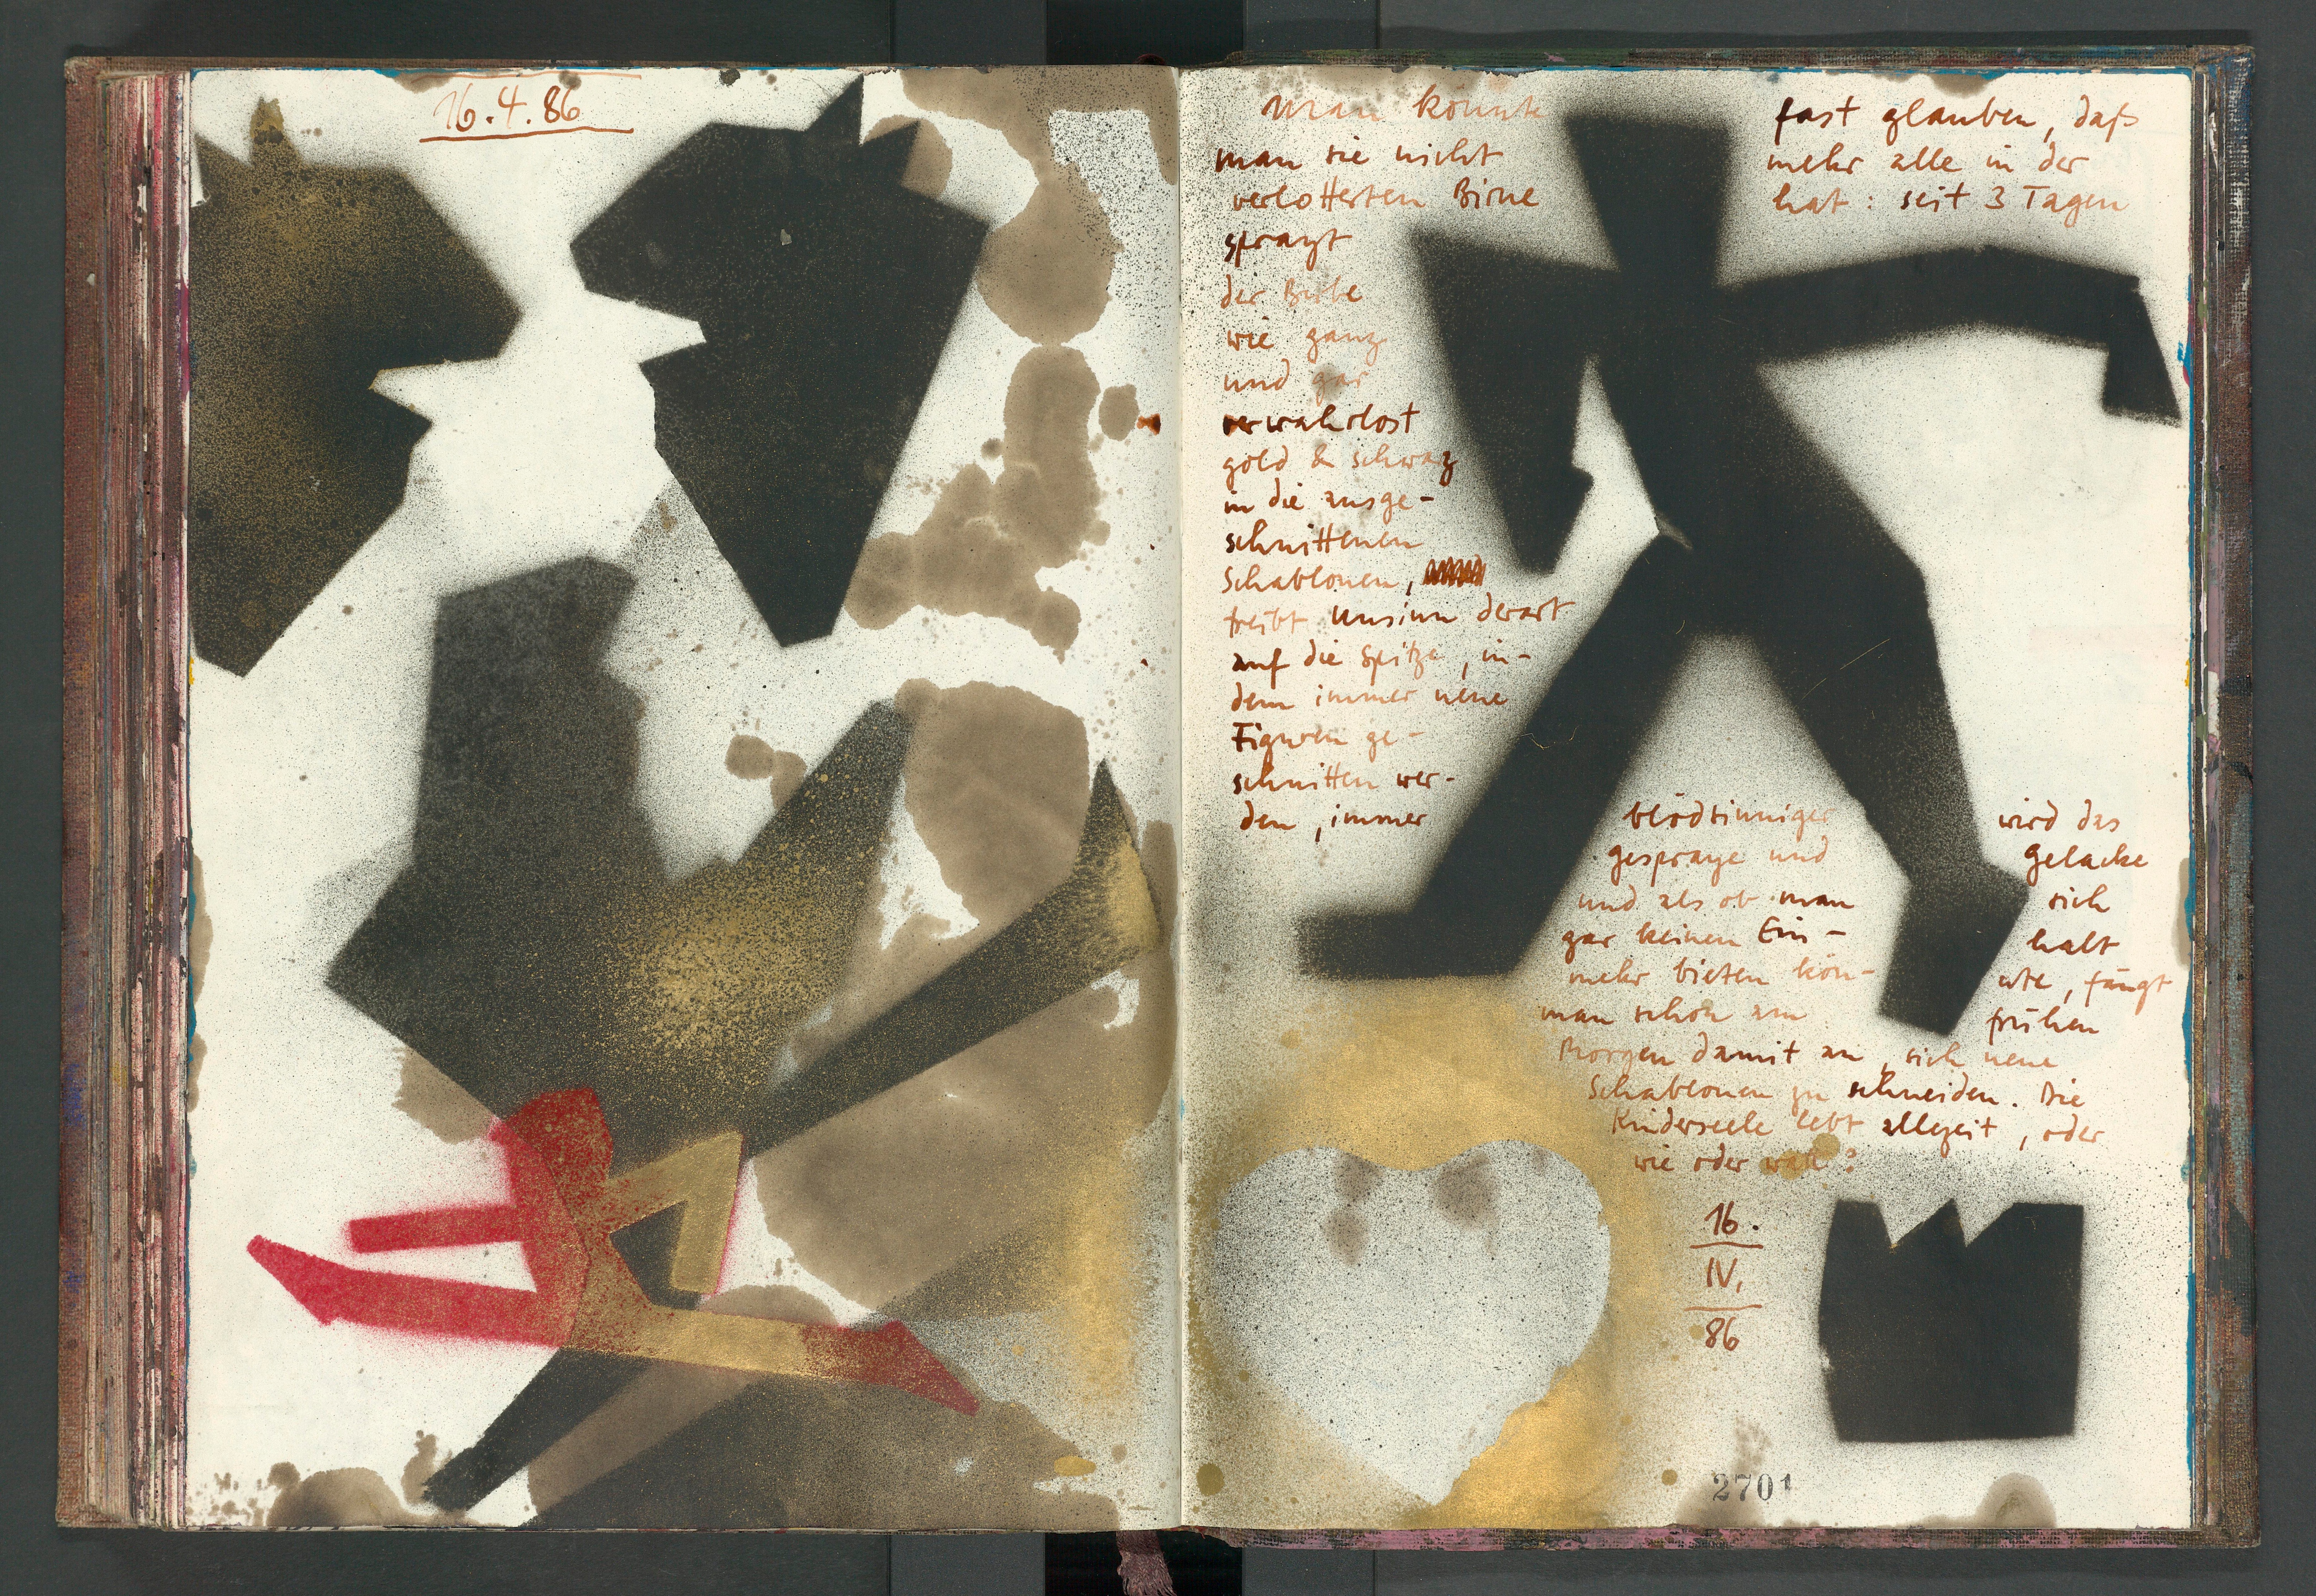 16.4.86
man könnte fast glauben, daß
man sie nicht mehr alle in der
verlotterten Birne hat: seit 3 Tagen
sprayt
der Bube
wie ganz
und gar
verwahrlost
gold & schwarz
in die ausge-
schnittenen
Schablonen,
treibt Unsinn derart
auf die Spitze, in-
dem immer neue
Figuren ge-
schnitten wer-
den, immer blödsinniger wird das
gespraye und gelacke
und als ob man sich
gar keinen Ein- halt
mehr bieten kön- nte, fängt
man schon am frühen
Morgen damit an, sich neue
Schablonen zu schneiden. Die
Kinderseele lebt allezeit, oder
wie oder was?
16.
IV.
86
2701